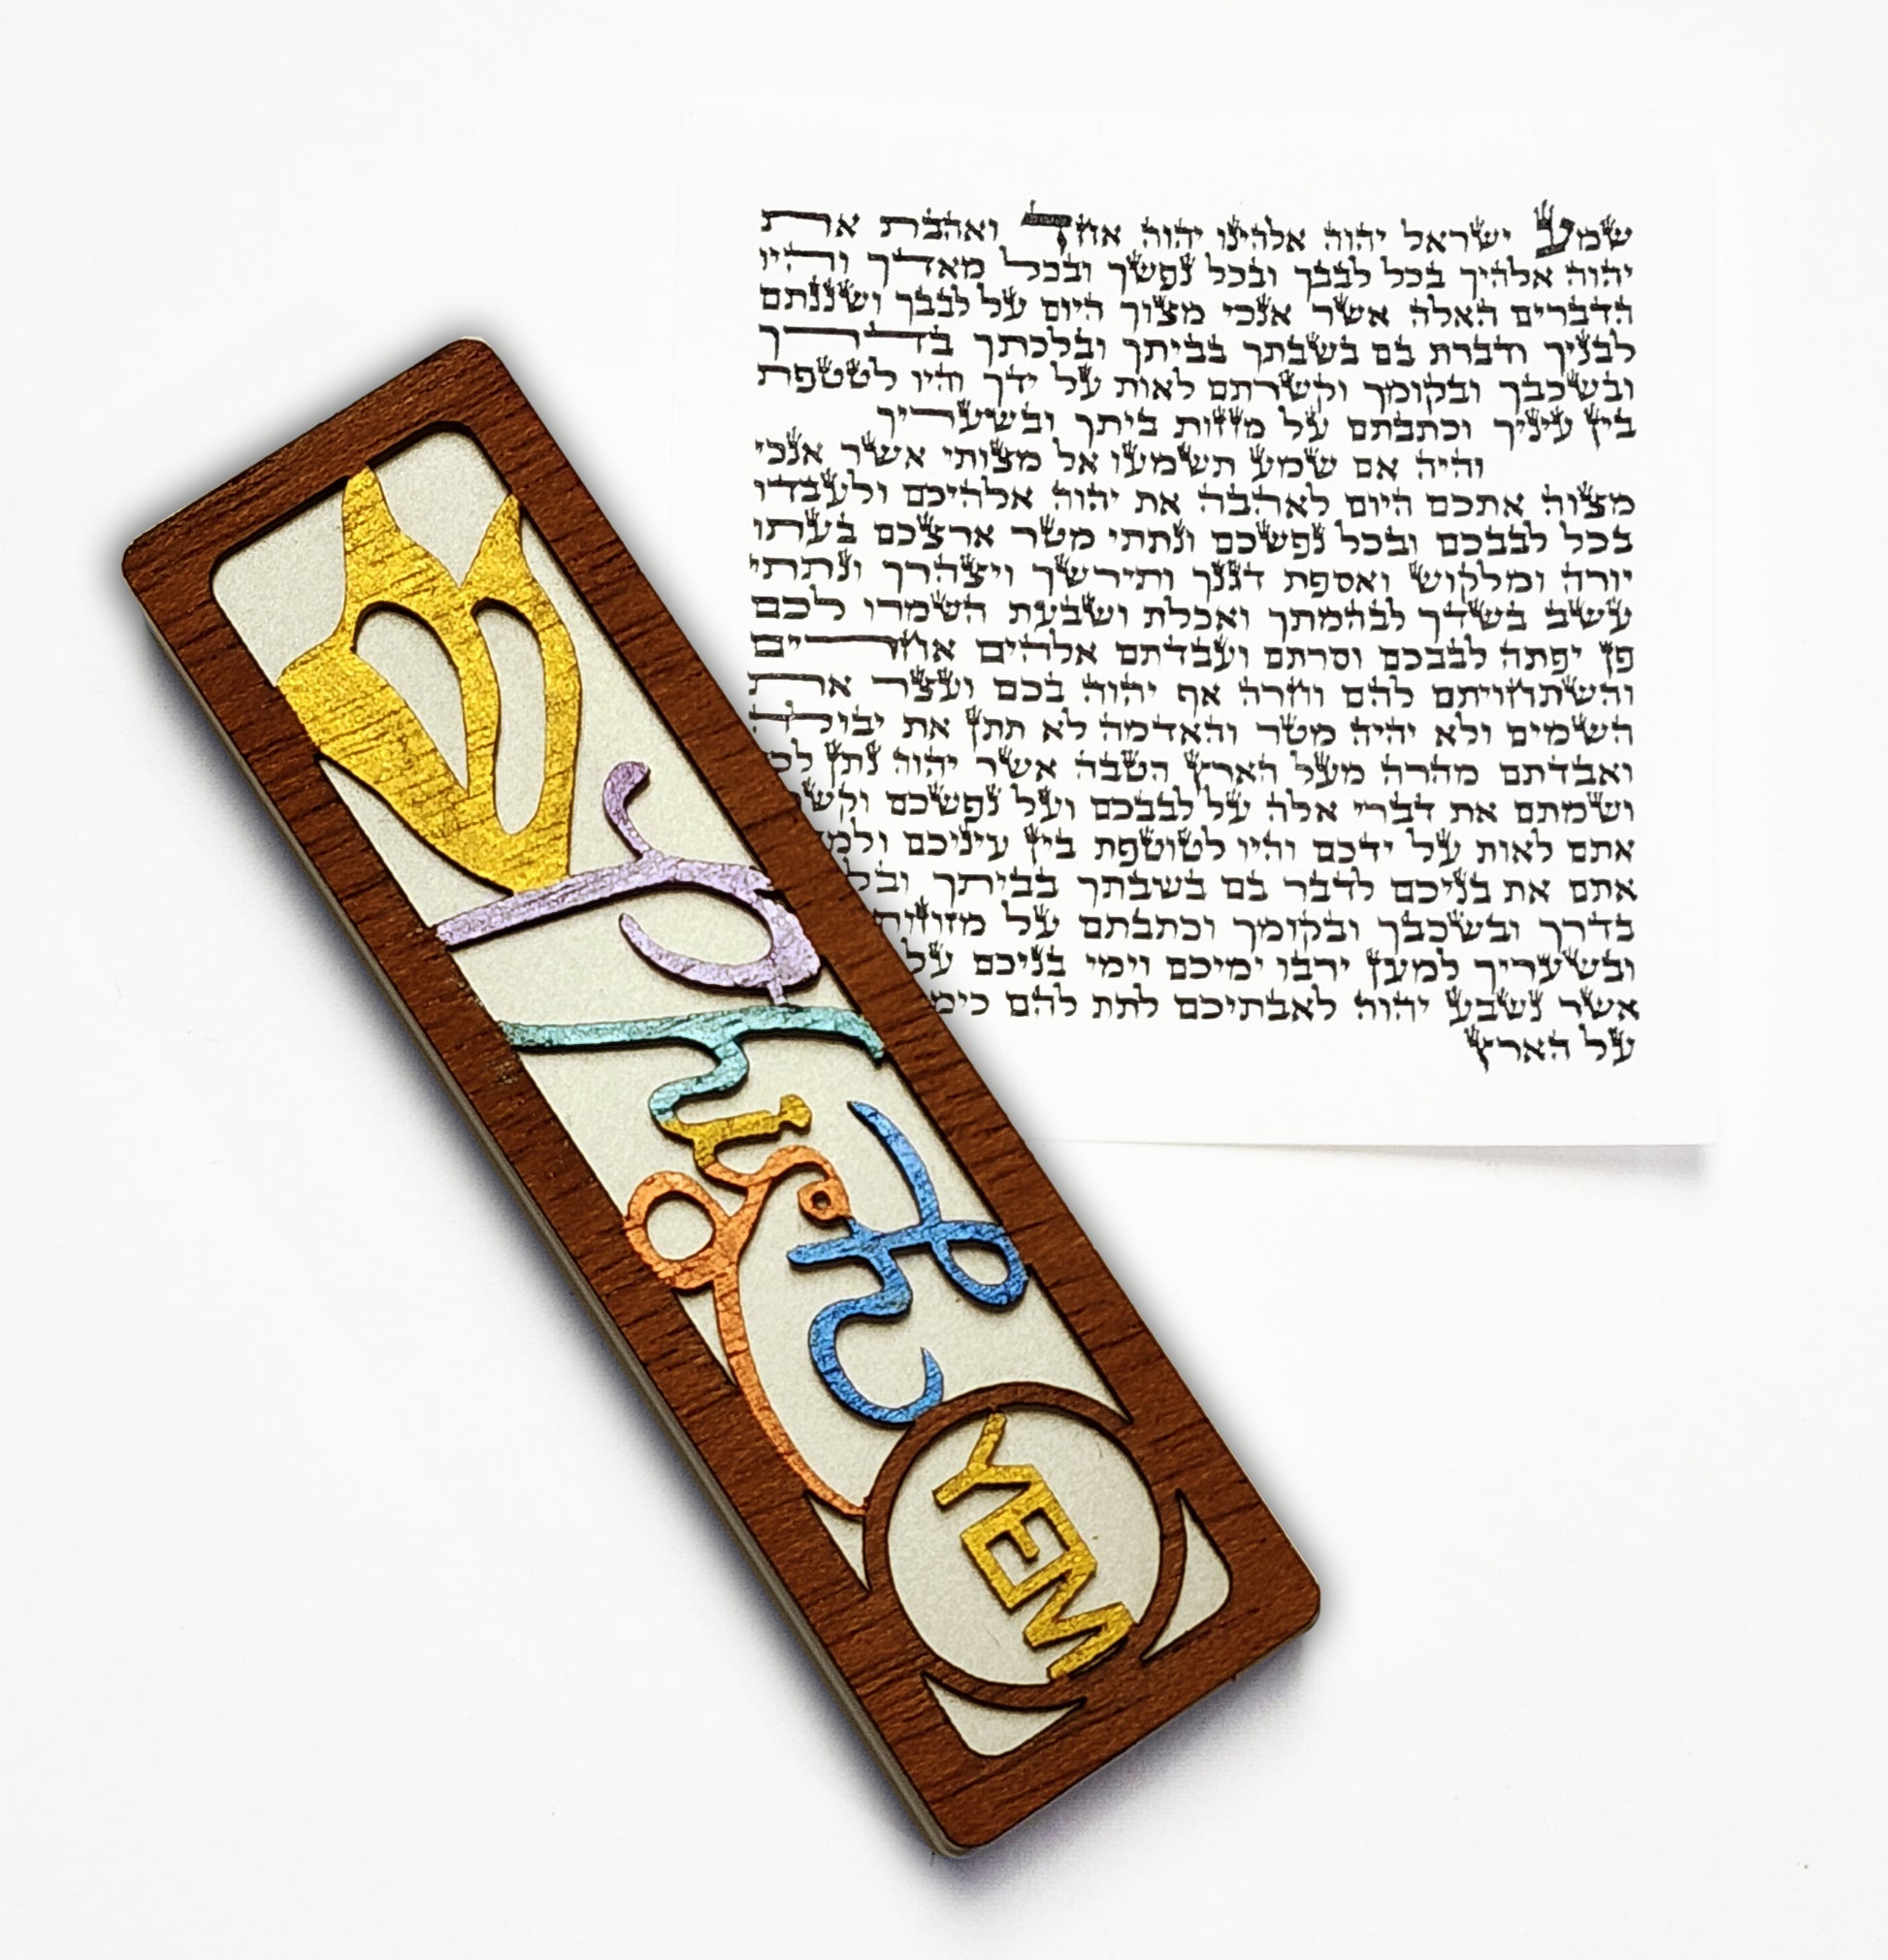 שמע ישראל יהוה אלהינו יהוה אחד ואהבת את
יהוה אלהיך בכל לבבך ובכל נפשך ובכל מאדך והיו
הדברים האלה אשר אנכי מצוך היום על לבבך ושננתם
לבניך ודברת בם בשבתך בביתך ובלכתך בדרך
ובשכבך ובקומך וקשרתם לאות על ידך והיו לטטפת
בין עיניך וכתבתם על מזזות ביתך ובשעריך
והיה אם שמע תשמעו אל מצותי אשר אנכי
מצוה אתכם היום לאהבה את יהוה אלהיכם ולעבדו
בכל לבבכם ובכל נפשכם ונתתי מטר ארצכם בעתו
יורה ומלקוש ואספת דגנך ותירשך ויצהרך ונתתי
עשב בשדך לבהמתך ואכלת ושבעת השמרו לכם
פן יפתה לבבכם וסרתם ועבדתם אלהים אחרים
והשתחויתם להם וחרה אף יהוה בכם ועצר את
השמים ולא יהיה מטר והאדמה לא תתן את יבולה
ואבדתם מהרה מעל הארץ הטבה אשר יהוה נתן לכ
ושמתם את דברי אלה על לבבכם ועל נפשכם וקש
אתם לאות על ידכם והיו לטוטפת בין עיניכם ולמ
אתם את בניכם לדבר בם בשבתך בביתך ובל
בדרך ובשכבך ובקומך וכתבתם על מזוזות
ובשעריך למען ירבו ימיכם וימי בניכם על
אשר נשבע יהוה לאבתיכם לתת להם כימ
על הארץ
ש
YEM